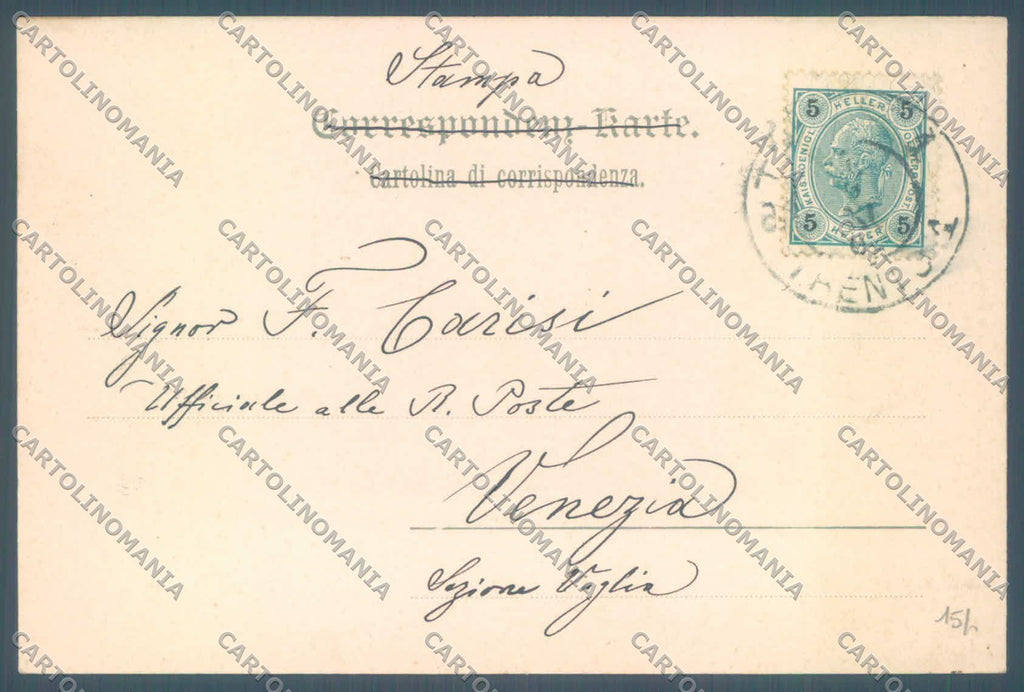 Stampa
Correspondenz-Karte.
Cartolina di corrispondenza.
5 HELLER 5
KAIS. KOENIGL.
5 HELLER 5
TRENTO 1
Signor F. Carisi
Ufficiale alle R. Poste
Venezia
Sezione Vaglia
15/-
CARTOLINOMANIA